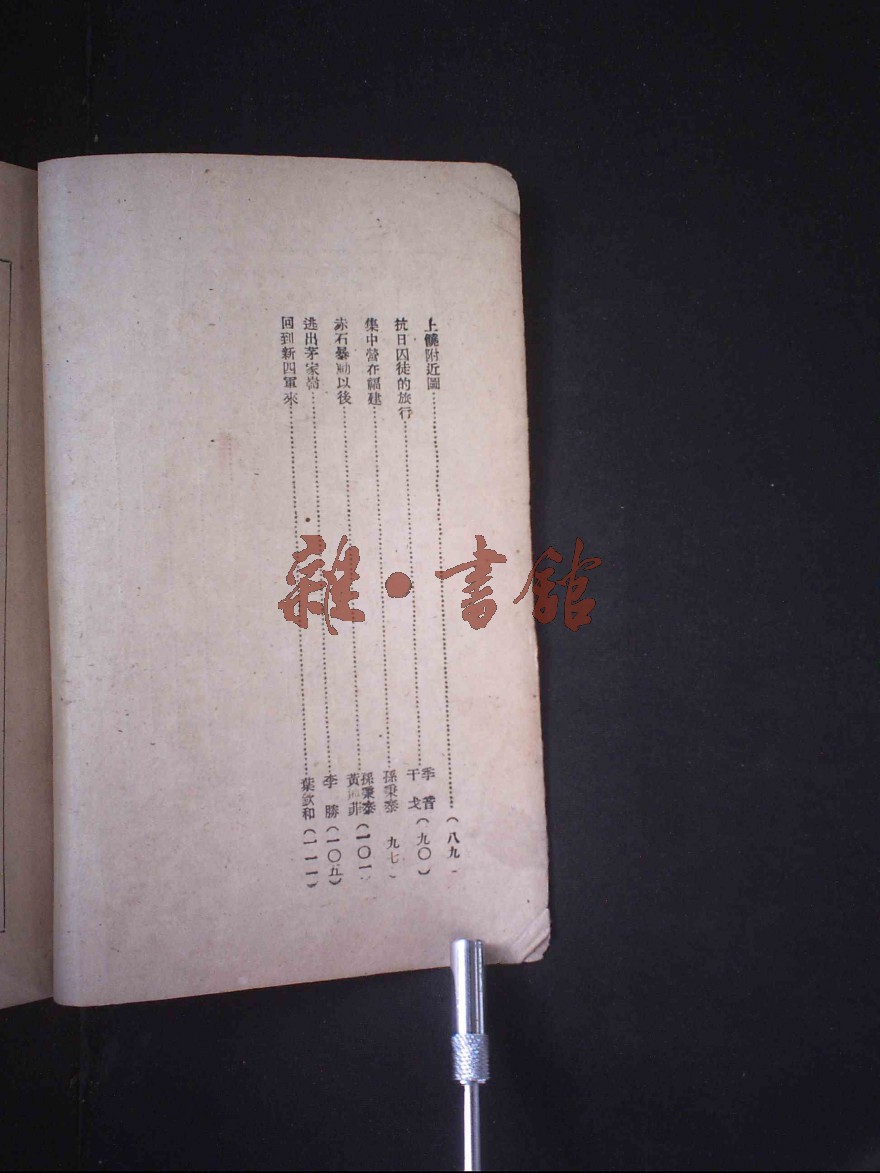 上饒附近圖……(八九)
抗日囚徒的旅行……季音 干戈(九〇)
集中營在福建……孫秉泰 九七)
赤石暴動以後……孫秉泰 黃 菲(一〇一)
逃出茅家嶺……李勝(一〇五)
回到新四軍來……葉欽和(一一一)
雜·書館